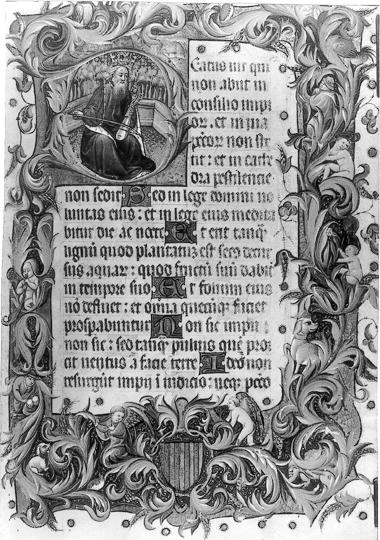 Eatus uir qui
non abiit in
consilio impi
oɼ. et in uia
pctoɼ non ste
tit: et in cathe
dra pestilencie
non sedit. Sed in lege domini uo
luntas eius: et in lege eius medita
bitur die ac nocte. Et erit tanq̃
lignũ quod plantatũ est secꝰ decur
sus aquaɼ: quod fructũ suũ dabit
in tempore suo. Et folium eius
nõ defluet: et omia quecũqꝫ faciet
prosꝑabuntur. Non sic impii
non sic: sed tanq̃ puluis quẽ proi
cit uentus a facie terre. Ideo non
resurgũt impii ĩ iudicio: neqꝫ pctõ